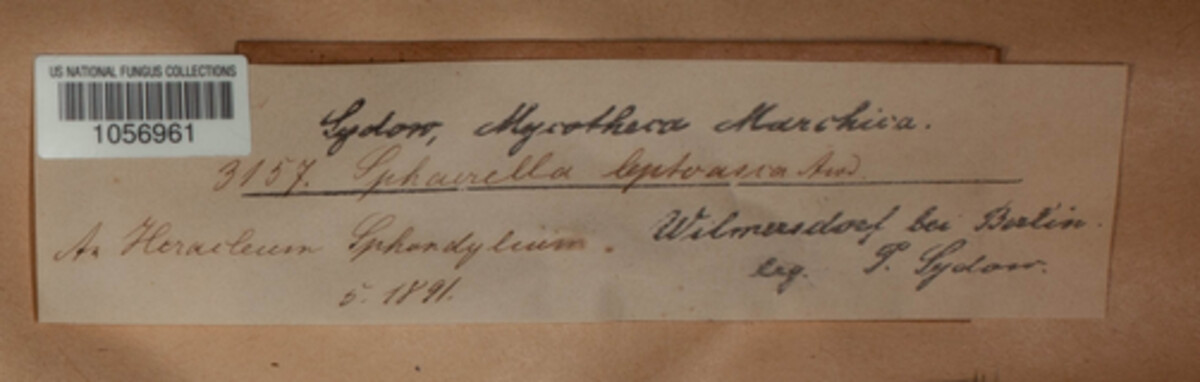 US NATIONAL FUNGUS COLLECTIONS
1056961
Sydow, Mycotheca Marchica.
3157. Sphaerella leptoasca Awd.
An Heracleum Sphondylium.
5. 1891.
Wilmersdorf bei Berlin.
leg. P. Sydow.